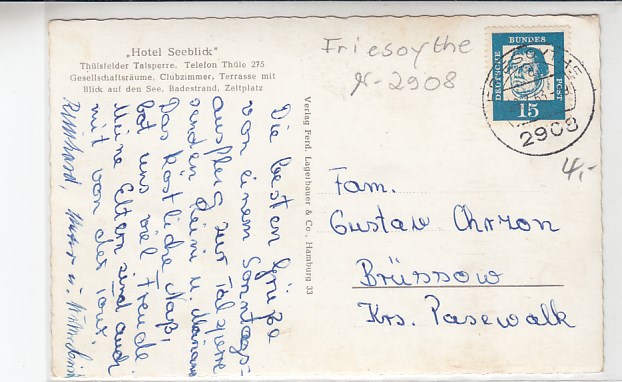 „Hotel Seeblick"
Thülsfelder Talsperre, Telefon Thüle 275
Gesellschaftsräume, Clubzimmer, Terrasse mit
Blick auf den See, Badestrand, Zeltplatz
Die besten Grüße
von einem Sonntags-
ausflug zur Talsperre
senden Reini u. Mariann
Das köstliche Naß,
hat uns viel Freude
Meine Eltern sind auch
mit von der Tour.
Reinhard,
Verlag Ferd. Lagerbauer & Co., Hamburg 33
Friesoythe
2908
DEUTSCHE
BUNDES
POST
15
2908
4,-
Fam.
Gustav Chrzon
Brüssow
Krs. Pasewalk